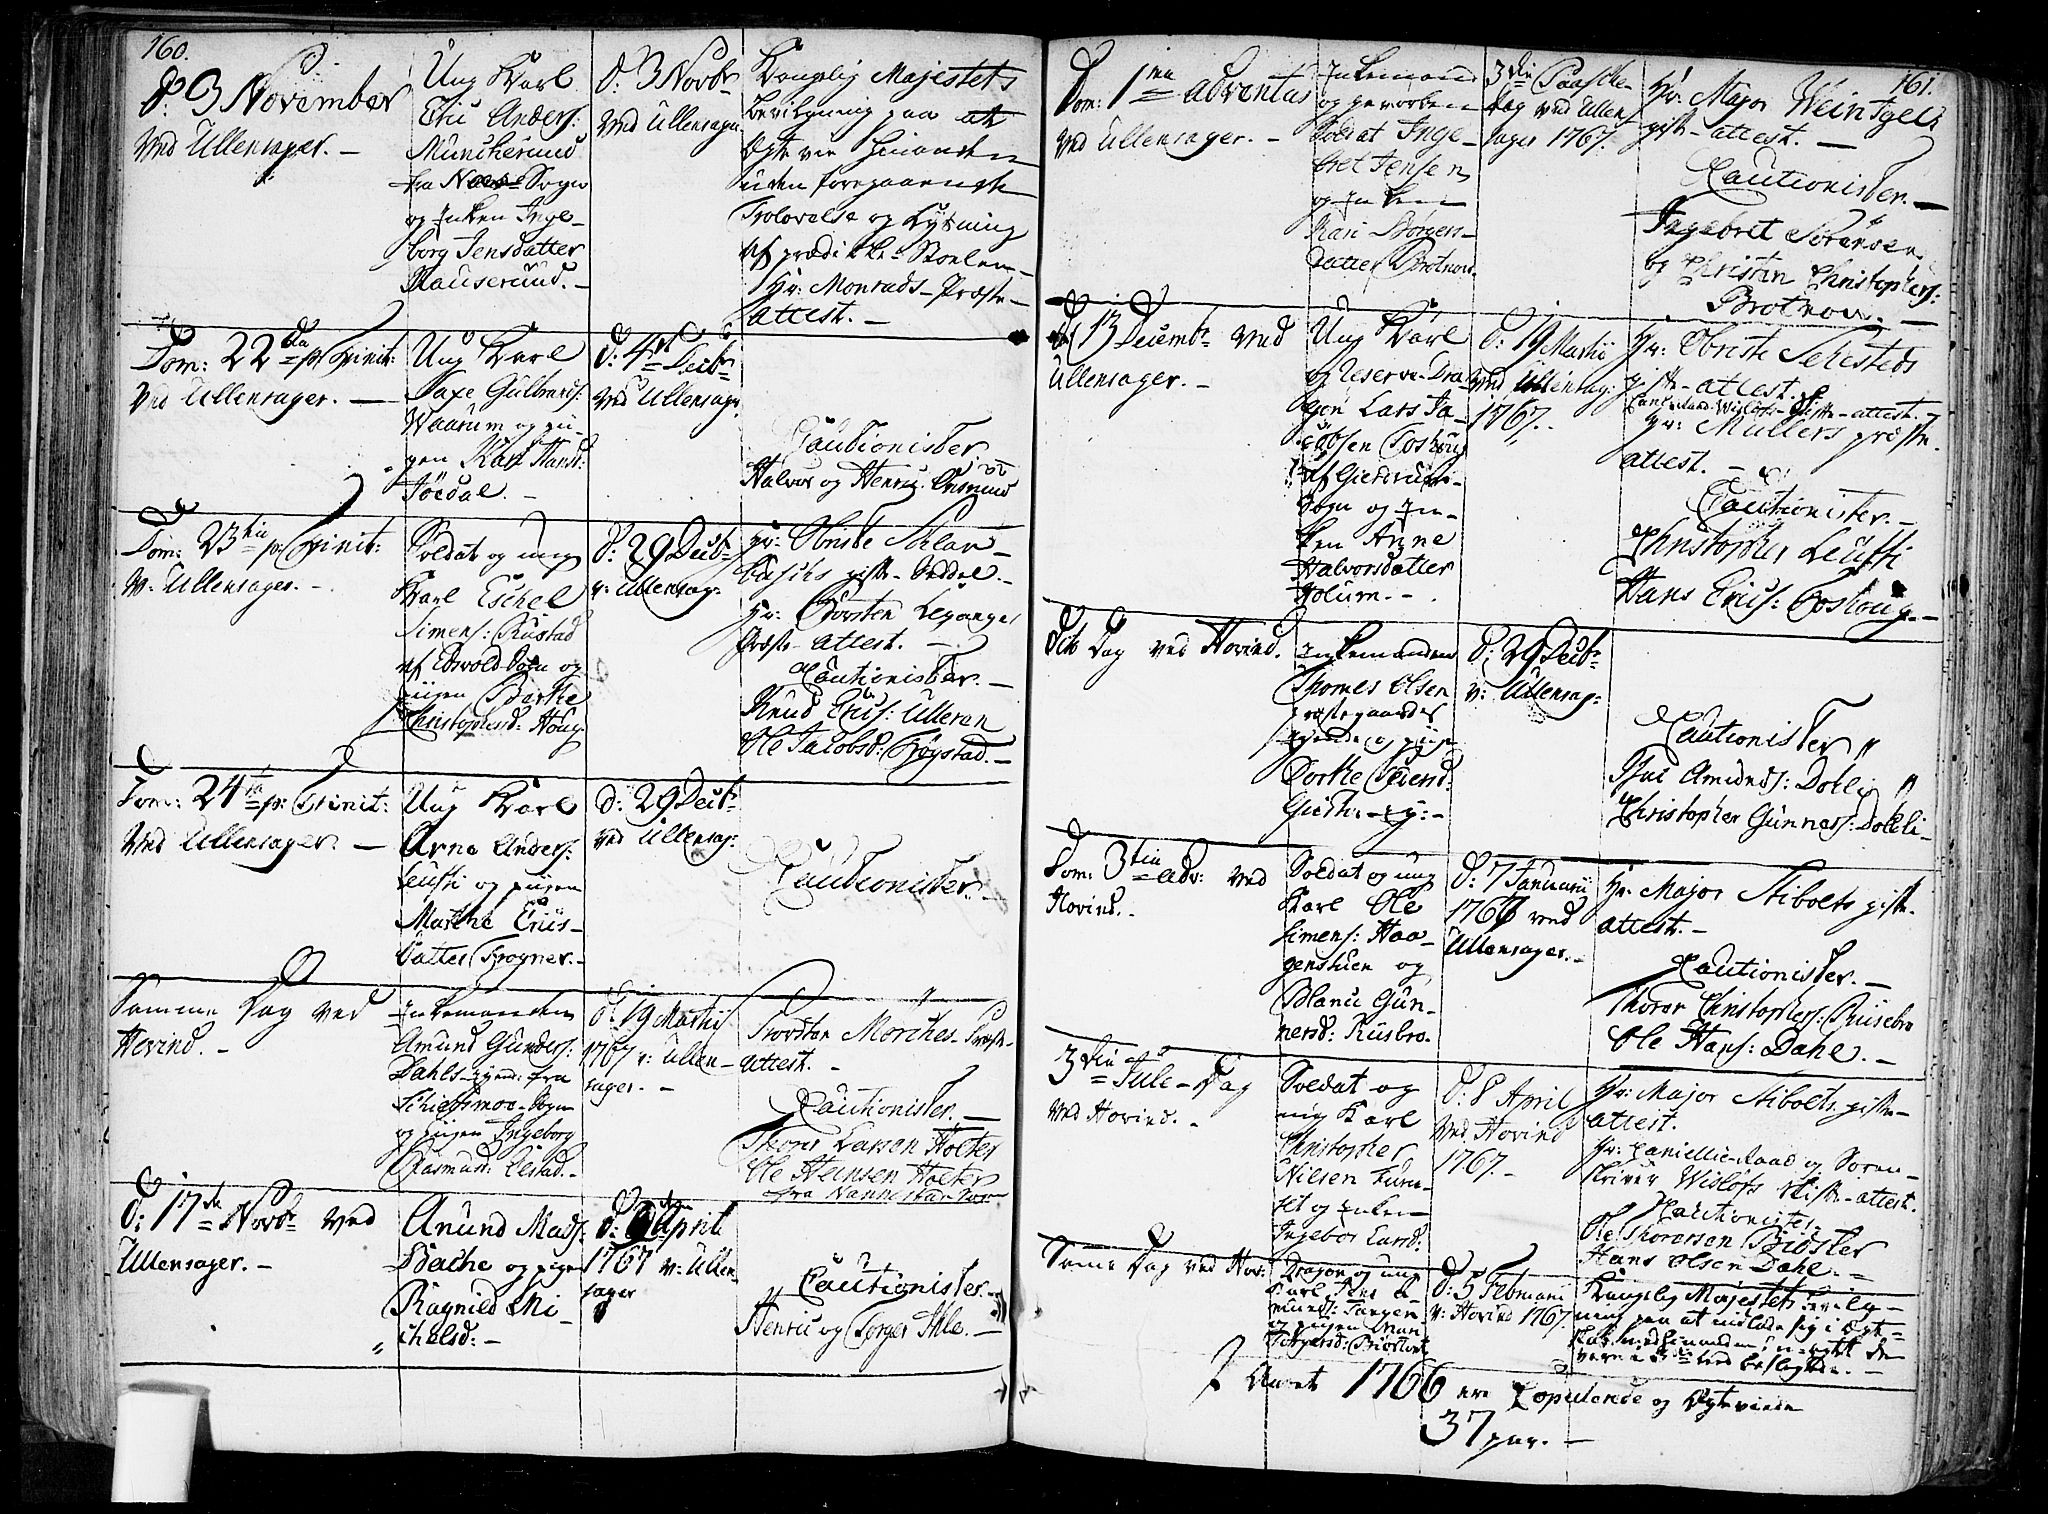 160.
d: 3 November
ved Ullensager. –
Ung Karl
Eric Anders:
Muncherud
fra Næsse Sogn
og Enken Inge-
borg Jensdatter
Klauserud. –
d: 3 Novbr
ved Ullensager
Kongelig Majestets
bevilgning paa at
Ægte vie hinanden
uden foregaaende
Trolovelse og Lysning
af prædikke-Stoelen –
Hr: Monrads Præste-
attest. –
Dom: 22da p: Trinit:
ved Ullensager. –
Ung Karl
Saxe Gulbrands:
Waarum og pi-
gen Kari Hansd:
Jødal. –
d: 4de Decbr
ved Ullensag:
Cautionister
Halvor og Henric
Dom: 23tia p: Trinit:
v: Ullensager. –
Soldat og ung
Karl Eschel
Simens: Rustad
af Edsvold Sogn og
pigen Berthe
Christophersd: Houg
d: 29 Decbr
v: Ullensag:
Hr: Obriste
giftte-Seddel. –
Hr: Torsten
Præste-attest. –
Cautionister. –
Knud Erics: Ulleren
Ole Jacobsd: Røgstad. –
Dom: 24ta p: Trinit:
ved Ullensager. –
Ung Karl
Arne Anders:
Leusti og pigen
Marthe Erics-
datter Krogner. –
d: 29 Decbr
ved Ullensag:
Cautionister. –
Samme Dag ved
Hovind. –
Enkemanden
Amund Gunders:
Dahls-eyend: fra
Schiessmoe-Sogn
og pigen Ingeborg
Rasmusd: Elstad. –
d: 19 Martij
1767 v: Ullen-
sager. –
Provsten Morches Præste-
attest. –
Cautionister. –
Thorer Larsen Holter
Ole Heinsen Holter
fra Nannestad
d: 17de Novbr ved
Ullensager. –
Amund Mads:
Bache og pigen
Ragnild Mi-
chelsd: –
d: April
1767 v: Ullen
sager
Cautionister. –
Henric og Torger Ihle. –
161.
Dom: 1ma adventus
ved Ullensager. –
Enkemand
og geworben
Soldat Inge-
bret Jensen
og Enken
Kari Børgers-
datter Brotnou
3die Paasche-
Dag ved Ullen-
sager 1767.
Hr: Major Weintgels
gifte-attest. –
Cautionister. –
Ingebret Sørensen
og Christen Christophers:
Brotnou. –
d: 13 Decembr ved
Ullensager. –
Ung Karl
og Reserve-Dra-
gon Lars Ja-
cobsen Toshoug
af Gierdrum-
Sogn og En-
ken Anne
Halvorsdatter
Holum. –
d: 19 Martij
ved Ullensag:
1767. –
Hr: Obriste Sehesteds
gifte-attest.
Hr: Müllers præste-
attest. –
Cautionister. –
Christopher Leusti
Hans Erics: Toshoug. –
Dito Dag ved Hovind.
Enkemanden
Thomes Olsen
Præstegaardes
eyende og pige
Dorthe Seiersd:
Giesth-ey: –
d: 29 Decbr
v: Ullensag:
Cautionister
Amunds: Dobli
Christopher Gunners: Dobli –
Dom: 3tia adv: ved
Hovind. –
Soldat og ung
Karl Ole
Simens: Haa-
genstuen og
Blanci Gun-
nersd: Rusbro.
d: 7 Januarii
1767 ved
Ullensager. –
Hr: Major Stibolts gifte-
attest. –
Cautionister. –
Thoror Christophers: Riisebro
Ole Hans: Dahl. –
3die Jule-Dag
ved Hovind. –
Soldat og
ung Karl
Christopher
Nilsen Furu-
set og Enken
Ingebor Larsd:
d: 8 April
ved Hovind
1767. –
Hr: Major Stibolts gifte-
attest.
Hr: Cancellie-Raad og Soren-
skriver Wisløfs Skifte-attest.
Cautionister.
Ole Thorersen Biøster
Hans Olsen Dahl. –
Samme Dag ved Hov:
Dragon og ung
Karl Jens A-
munds: Tangen
og pigen Mari
Torgersd: Biøster
d: 5 Februarii
v: Hovind 1767.
Kongelig Majestets bevilg-
ning paa at indlade sig i Ægte-
skab med hinanden, u-agtet de
vare i 3die led beslegtede. –
I Aaret 1766 ere Copulerede og Ægteviede
37 par. –